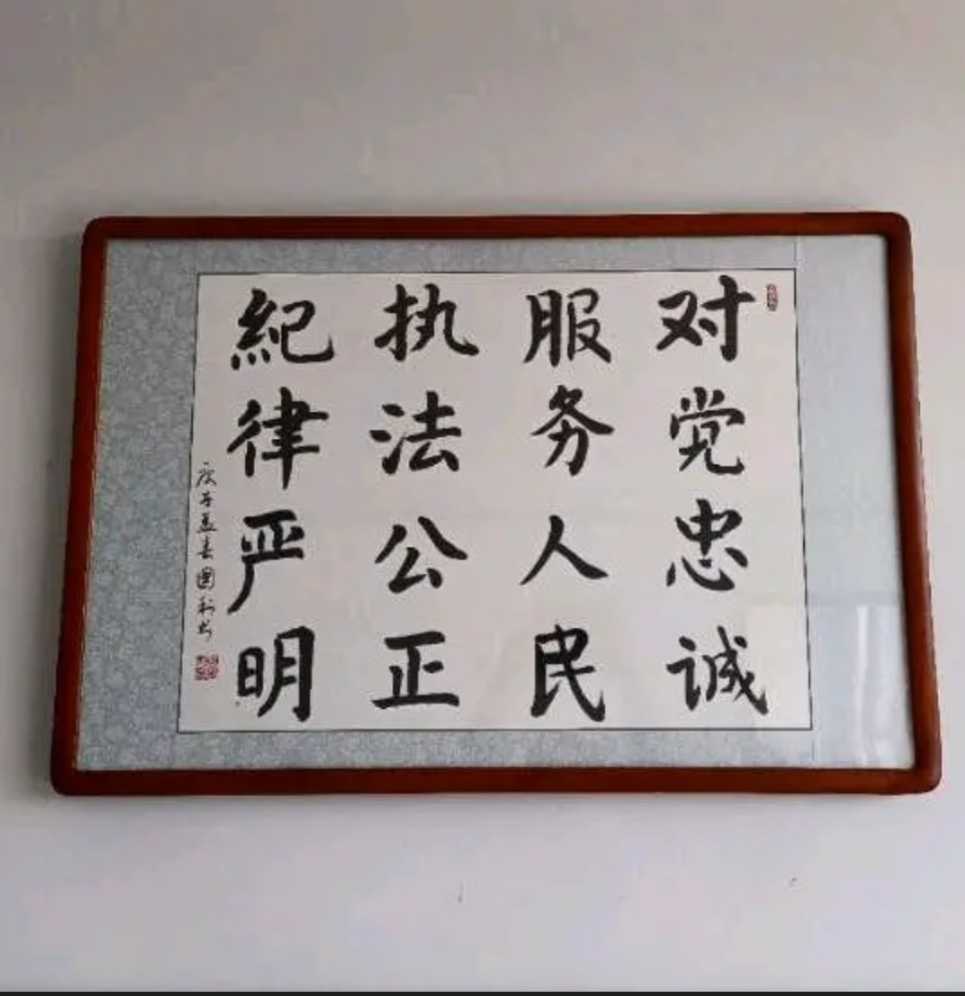 对党忠诚
服务人民
执法公正
紀律严明
庚子孟春国利书